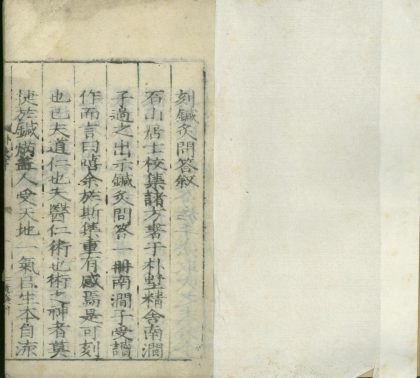 刻鍼灸問答敘
石山居士校集諸方書于朴墅精舍南澗
子過之出示鍼灸問答一冊南澗子受讀
作而言曰嘻余於斯集重有感焉是可刻
也已夫道仁也夫醫仁術也術之神者莫
捷於鍼焫蓋人受天地一氣㠯生本自流